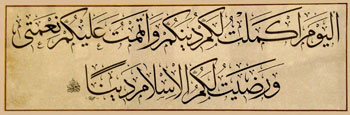 اليوم اكملت لكم دينكم واتممت عليكم نعمتي
ورضيت لكم الاسلام دينا